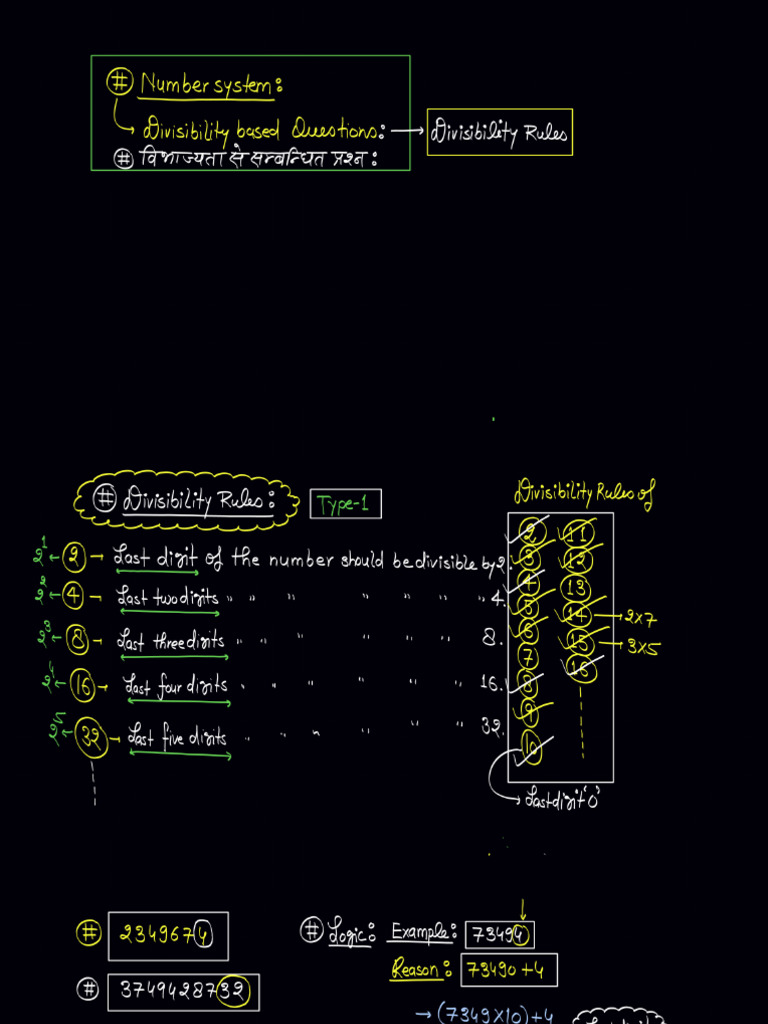 # Number system:
Divisibility based Questions: → Divisibility Rules
# विभाज्यता से सम्बन्धित प्रश्न:
# Divisibility Rules: Type-1
2¹ ← 2 → Last digit of the number should be divisible by 2.
2² ← 4 → Last two digits " " " " " " " 4.
2³ ← 8 → Last three digits " " " " " " " 8.
2⁴ ← 16 → Last four digits " " " " " " 16.
2⁵ ← 32 → Last five digits " " " " " " 32.
Divisibility Rules of
2 11
3 12
4 13
5 14 → 2×7
6 15 → 3×5
7 16
8
9
10
Last digit '0'
# 2349674
# 3749428732
# Logic: Example: 73494
Reason: 73490 + 4
→ (7349×10) + 4